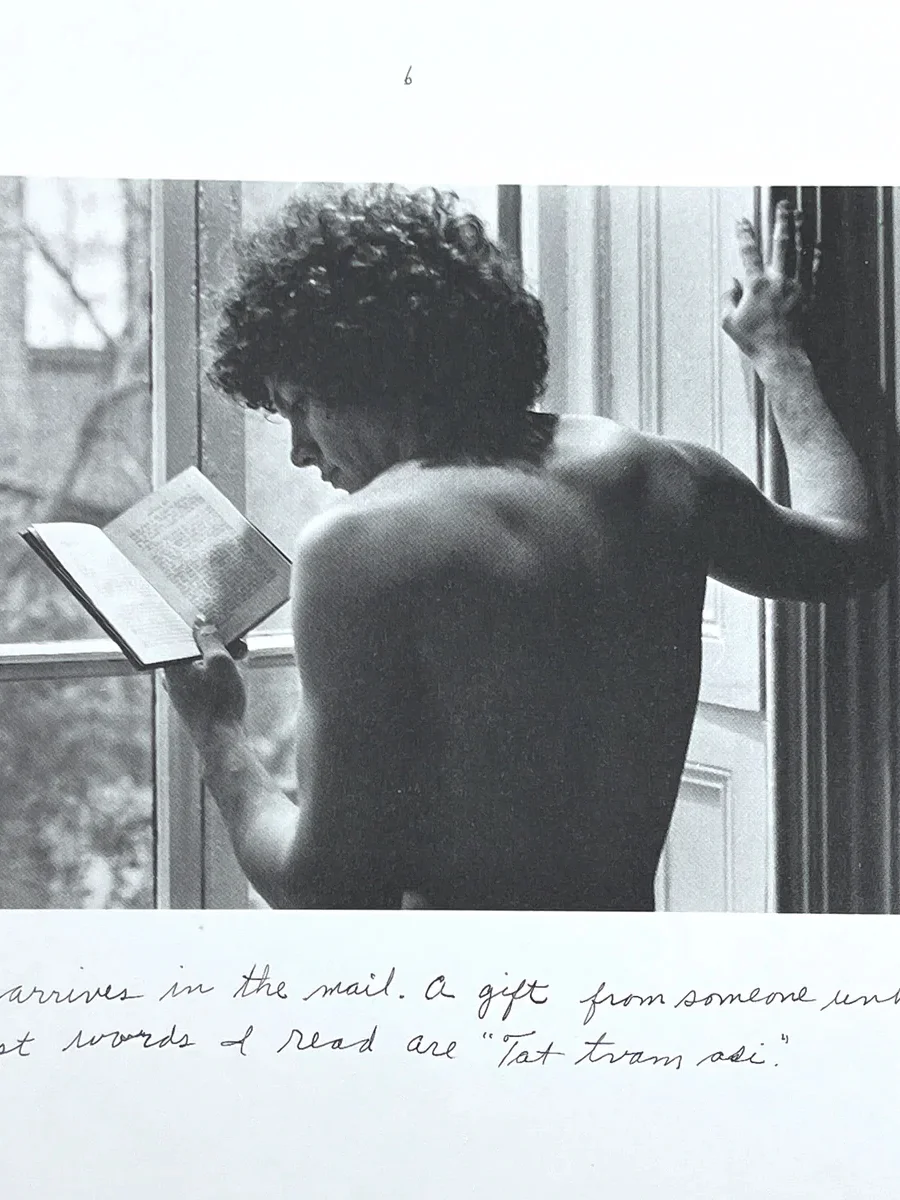 6
arrives in the mail. A gift from someone
words I read are "Tat tvam asi."